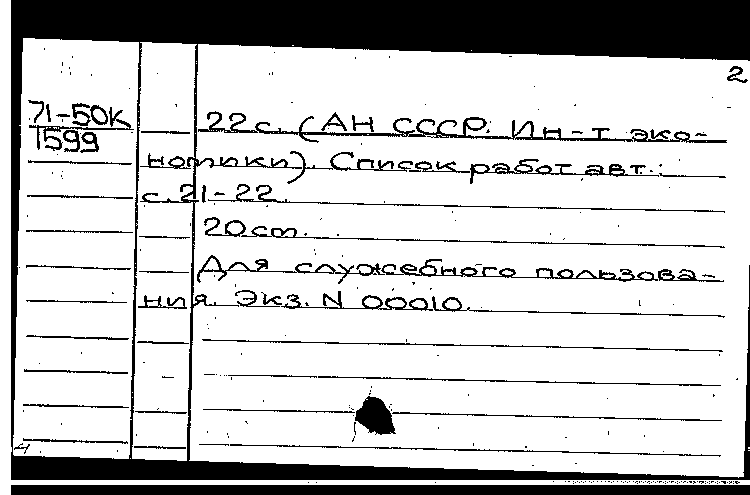 2
71-50К
1599
22с. (АН СССР. Ин-т эко-
номики). Список работ авт.:
с.21-22.
20см.
Для служебного пользова-
ния. Экз. N 00010.